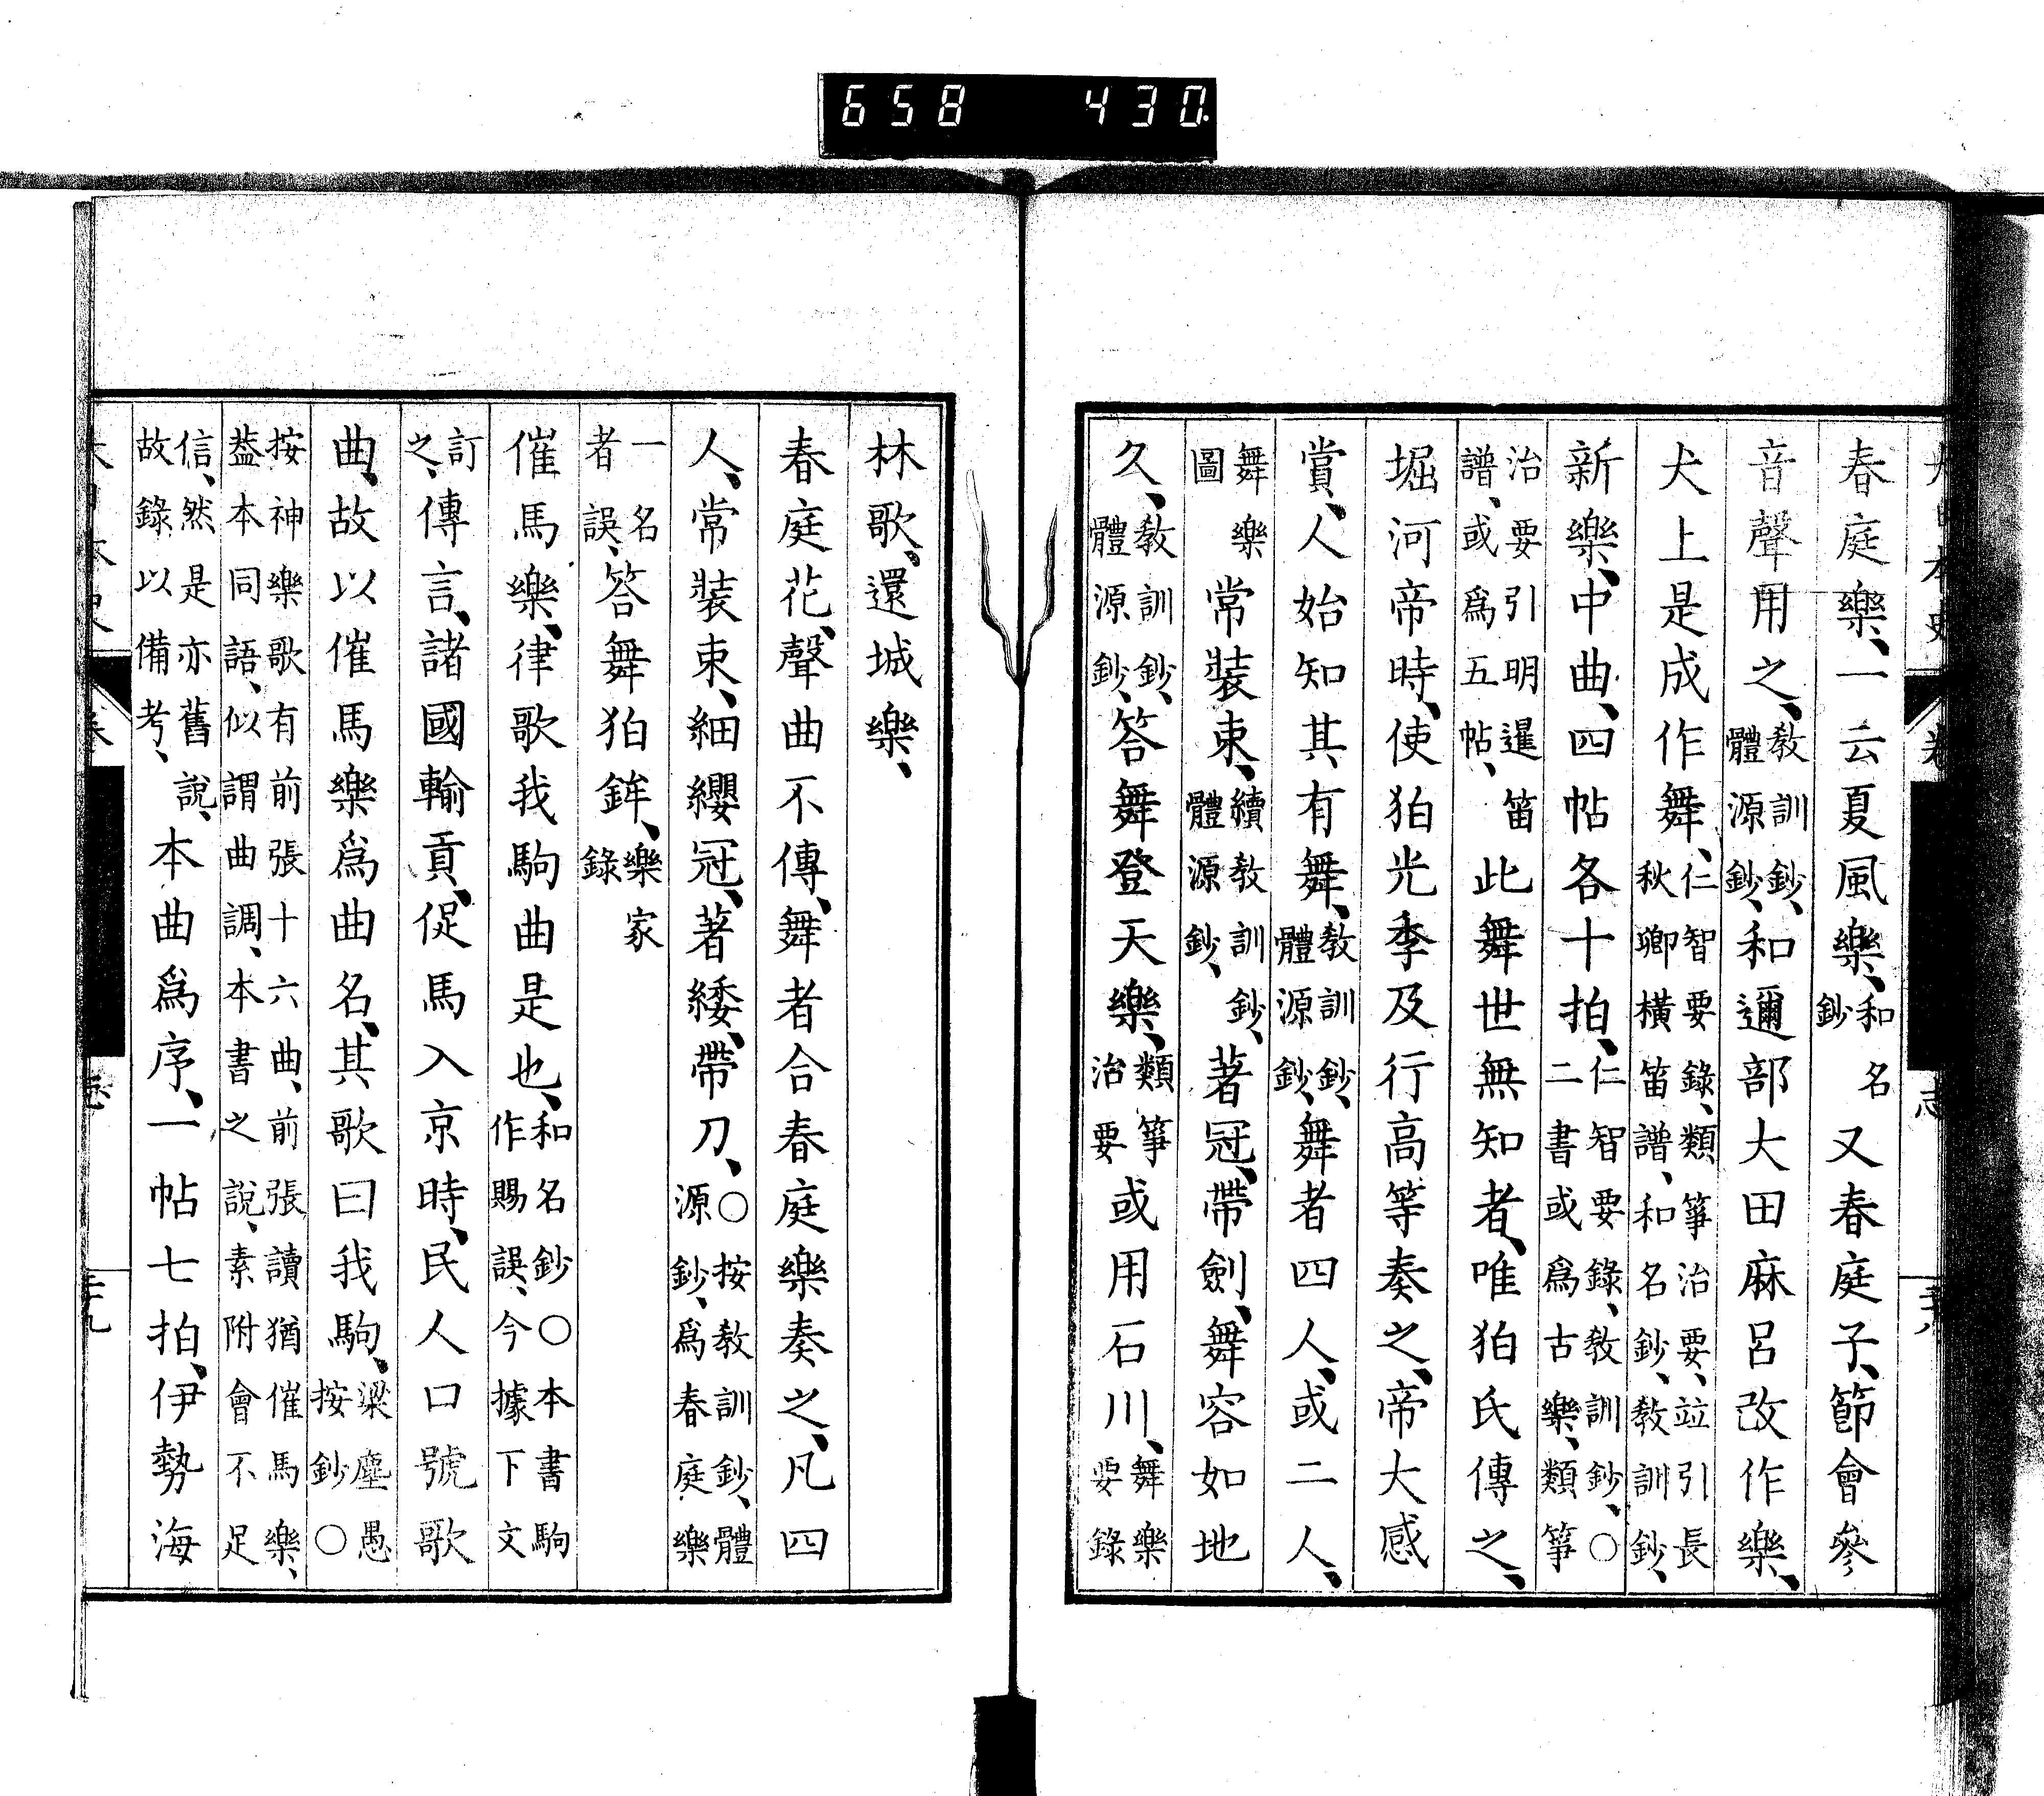 658 430
春庭樂、一云夏風樂、和名鈔又春庭子、節會參
音聲用之、敎訓鈔、體源鈔、和邇部大田麻呂改作樂、
犬上是成作舞、仁智要錄、類箏治要、竝引長秋卿橫笛譜、和名鈔、敎訓鈔、
新樂、中曲、四帖各十拍、仁智要錄、敎訓鈔、○二書或爲古樂、類箏
治要引明暹笛譜、或爲五帖、此舞世無知者、唯狛氏傳之、
堀河帝時、使狛光季及行高等奏之、帝大感
賞、人始知其有舞、敎訓鈔、體源鈔、舞者四人、或二人、
舞樂圖常裝束、續敎訓鈔、體源鈔、著冠、帶劍、舞容如地
久、敎訓鈔、體源鈔、答舞登天樂、類箏治要或用石川、舞樂要錄
林歌、還城樂、
春庭花、聲曲不傳、舞者合春庭樂奏之、凡四
人、常裝束、細纓冠、著緌、帶刀、○按敎訓鈔、體源鈔、爲春庭樂
一名者誤、答舞狛鉾、樂家錄
催馬樂、律歌我駒曲是也、和名鈔○本書駒作賜誤、今據下文
訂之、傳言、諸國輸貢、促馬入京時、民人口號歌
曲、故以催馬樂爲曲名、其歌曰我駒、梁塵愚按鈔○
按神樂歌有前張十六曲、前張讀猶催馬樂、葢本同語、似謂曲調、本書之說、素附會不足
信、然是亦舊說、故錄以備考、本曲爲序、一帖七拍、伊勢海